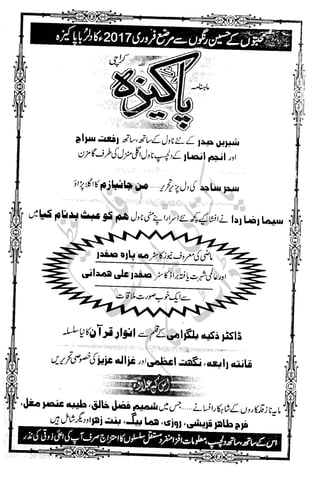 محبتوں کے حسین رنگوں سے مرصع فروری 2017ء کا دلربا پاکیزہ
ماہنامہ
پاکیزہ
کراچی
شیریں حیدر کے نئے ناول کے ساتھ، ساتھ رفعت سراج
اور انجم انصار کے دلچسپ ناول اگلی منزل کی طرف گامزن
سحر ساجد کی دل پزیر تحریر من جانبازم کا اگلا پڑاؤ
سیما رضا ردا نے افشا کیے کچھ نئے اسرار اپنے منی ناول ہم کو عبث بدنام کیا میں
ماضی کی معروف نیوز کاسٹر مہ پارہ صفدر
اور عالمی شہرت یافتہ براڈ کاسٹر صفدر علی ھمدانی
سے ایک خوب صورت ملاقات
ڈاکٹر ذکیہ بلگرامی کے قلم سے انوار قرآن کا نیا سلسلہ
قانتہ رابعہ، نگہت اعظمی اور غزالہ عزیز کی خصوصی تحریریں
اس کے علاوہ
مایہ ناز قلمکاروں کے شاہکار افسانے جس میں شمیم فضل خالق، طیبہ عنصر مغل،
فرح طاہر قریشی، روزی، ھما بیگ، بنت زہرا و دیگر شامل ہیں
اس کے ساتھ، ساتھ دلچسپ، معلومات افزا منفرد و مستقل سلسلوں کا امتزاج صرف آپ کی اعلیٰ ذوقی کی نذر